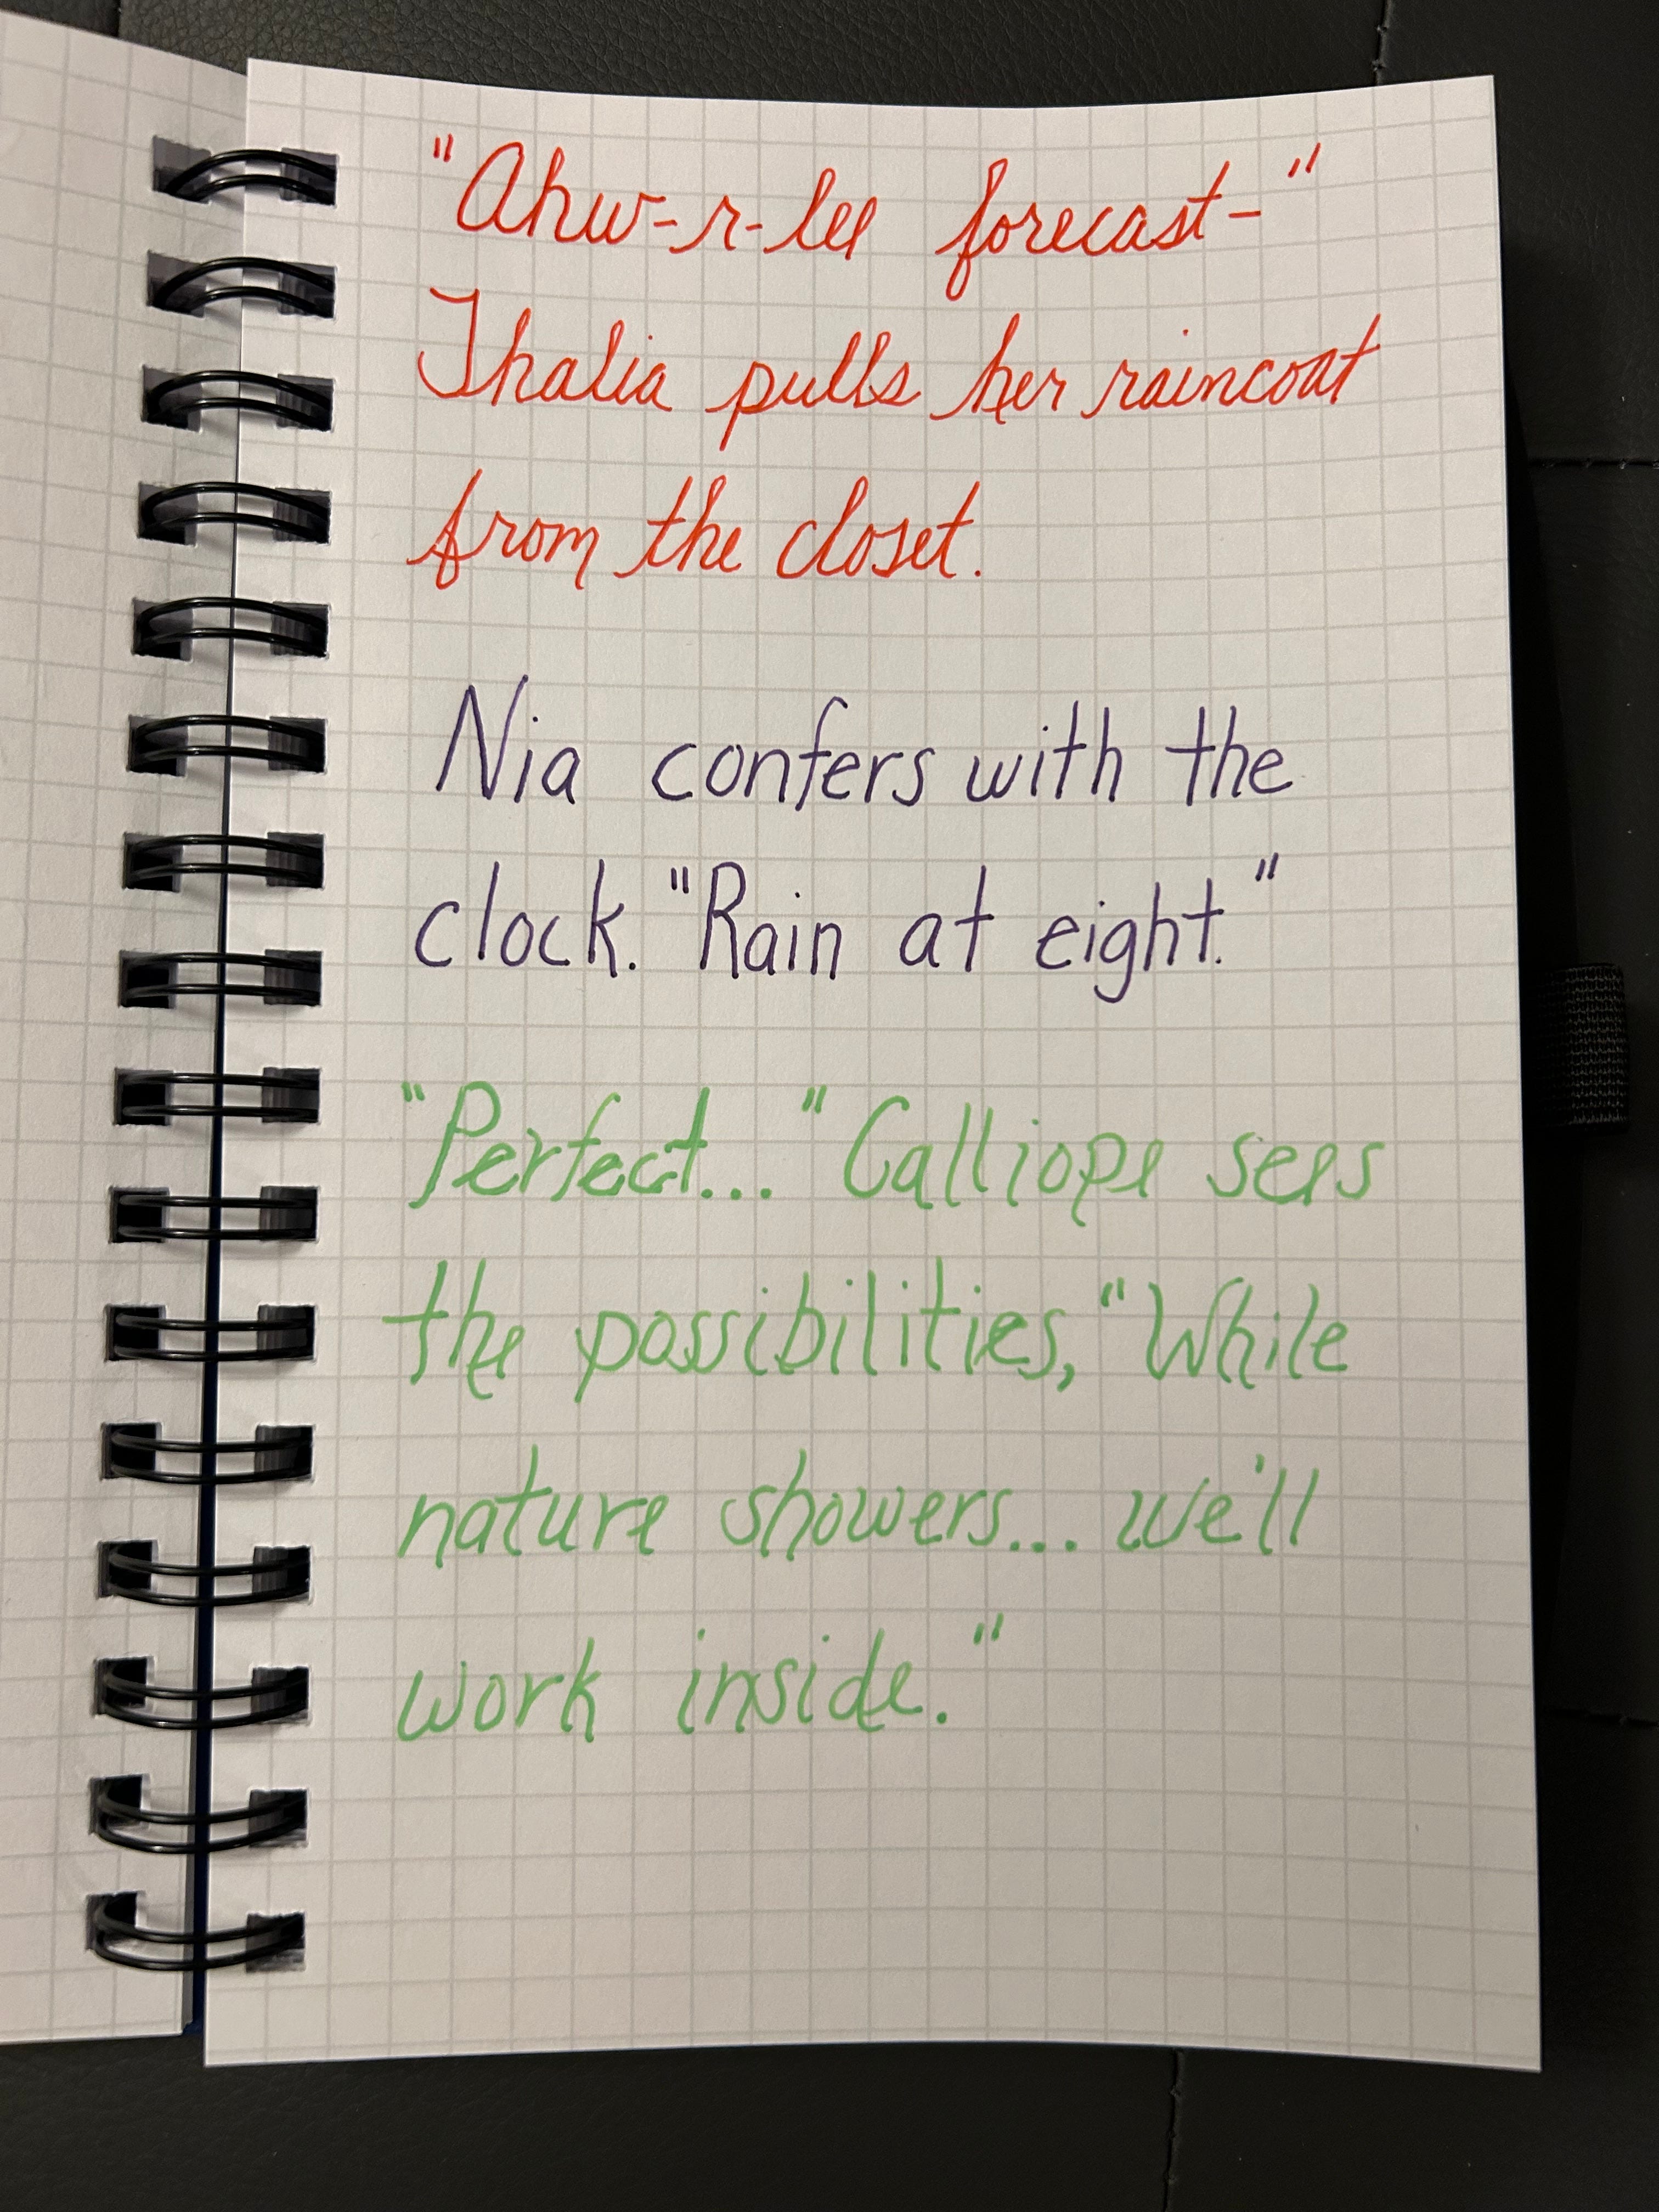 "Ahw-r-lee forecast-"
Thalia pulls her raincoat
from the closet.
Nia confers with the
clock. "Rain at eight."
"Perfect..." Calliope sees
the possibilities, "While
nature showers... we'll
work inside."